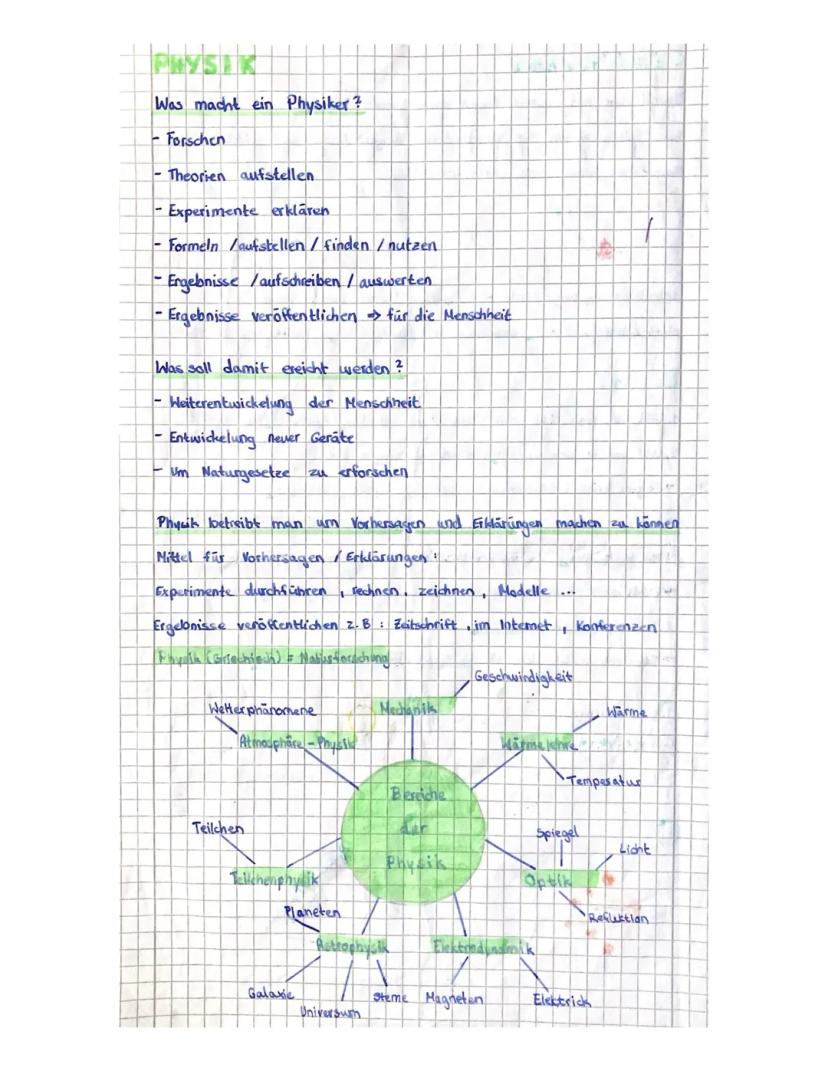 PHYSIK
Was macht ein Physiker?
- Forschen
- Theorien aufstellen
- Experimente erklären
- Formeln /aufstellen / finden / nutzen
- Ergebnisse /aufschreiben / auswerten
- Ergebnisse veröffentlichen ⇒ für die Menschheit
Was soll damit ereicht werden?
- Weiterentwickelung der Menschheit
- Entwickelung neuer Geräte
- Um Naturgesetze zu erforschen
Physik betreibt man um Vorhersagen und Erklärungen machen zu können
Mittel für Vorhersagen / Erklärungen:
Experimente durchführen, rechnen, zeichnen, Modelle ...
Ergebnisse veröffentlichen z.B: Zeitschrift, im Internet, Konferenzen
Physik (Griechisch) = Naturforschung
Geschwindigkeit
Wetterphänomene
Mechanik
Wärme
Atmosphäre-Physik
Wärmelehre
Temperatur
Bereiche
der
Physik
Teilchen
Spiegel
Licht
Teilchenphysik
Optik
Planeten
Reflektion
Astrophysik
Elektrodynamik
Galaxie
Universum
Sterne
Magneten
Elektrick